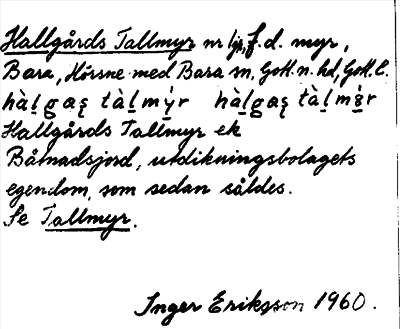 Hallgårds Tallmyr nr lji, f.d. myr,
Bara, Hörsne med Bara sn, Gotl. n. hd, Gotl. l.
hàḷgaș tàḷmýr hàḷgaș tàḷmǿr
Hallgårds Tallmyr ek
Båtnadsjord, utdikningsbolagets
egendom, som sedan såldes.
Se Tallmyr.
Inger Eriksson 1960.